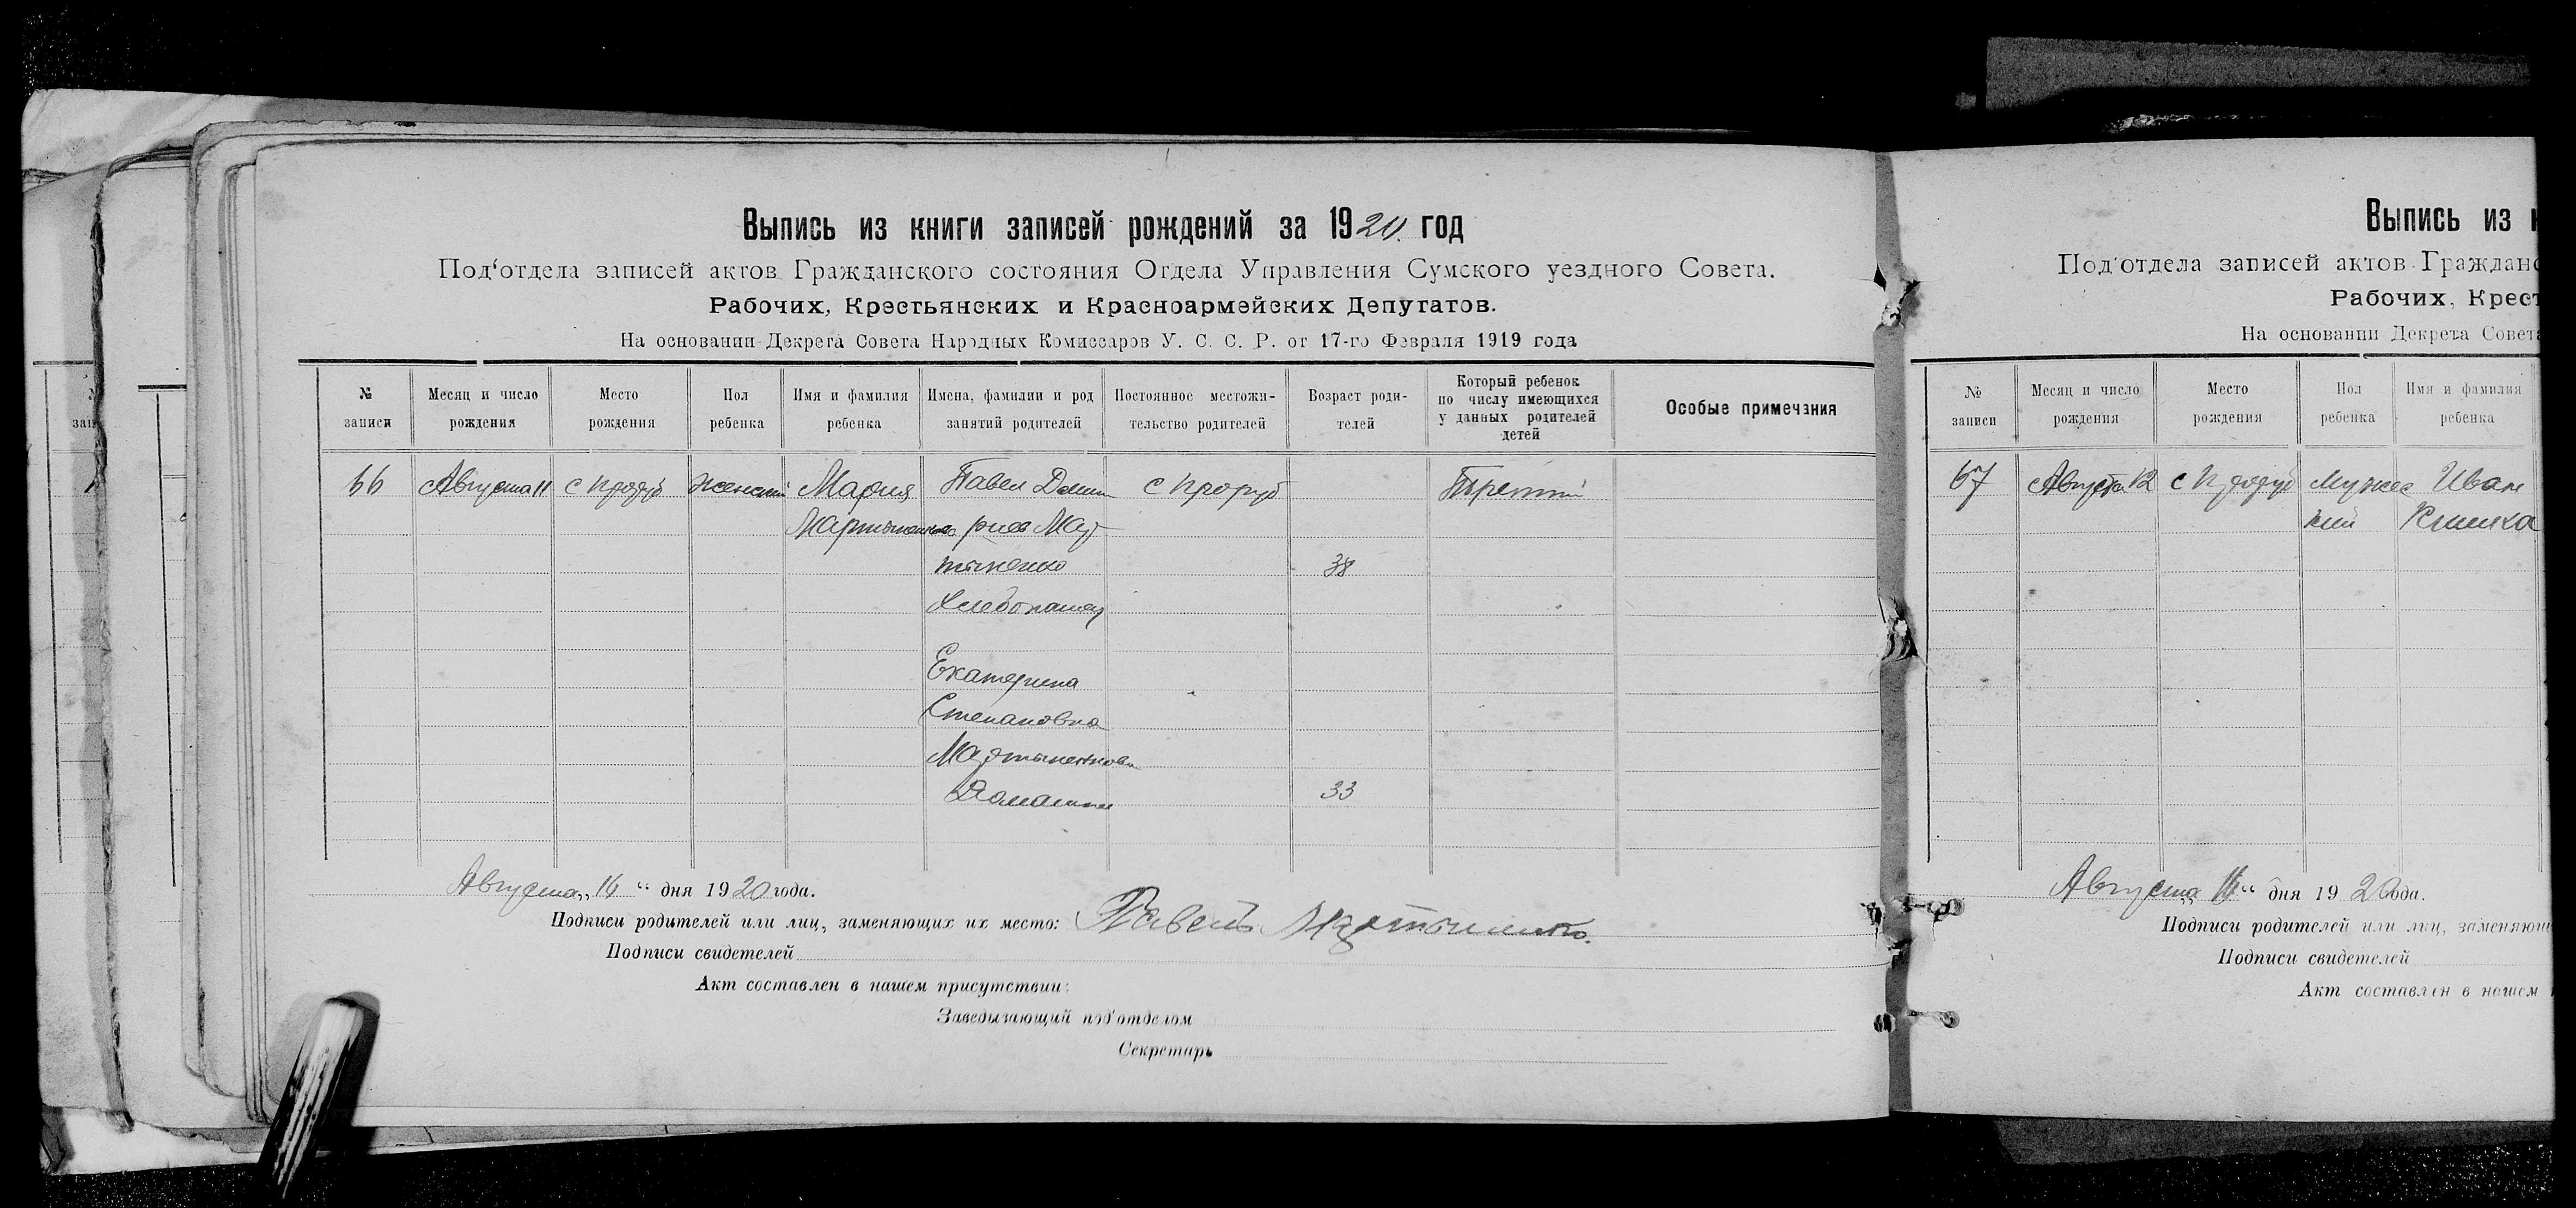 Выпись из книги записей рождений за 1920 год
Под‘отдела записей актов Гражданского состояния Отдела Управления Сумского уездного Совета.
Рабочих, Крестьянских и Красноармейских Депутатов.
На основании Декрета Совета Народных Комиссаров У. С. С. Р. от 17-го Февраля 1919 года
№ записи
Месяц и число рождения
Место рождения
Пол ребенка
Имя и фамилия ребенка
Имена, фамилии и род занятий родителей
Постоянное местожительство родителей
Возраст родителей
Который ребенок по числу имеющихся у данных родителей детей
Особые примечания
66 Августа 11 с Проруб Женский Мария Павел Дмит с Проруб Третий
Мартыненкова риев Мар
тыненко 38
Хлебопашец
Екатерина
Степановна
Мартыненкова
Домашн 33
Августа „16“ дня 1920 года.
Подписи родителей или лиц, заменяющих их место: Павелъ Мартыненко.
Подписи свидетелей
Акт составлен в нашем присутствии:
Заведывающий под‘отделом
Секретарь
Выпись из к
Под‘отдела записей актов Гражданс
Рабочих, Крест
На основании Декрета Совета
№ записи
Месяц и число рождения
Место рождения
Пол ребенка
Имя и фамилия ребенка
67 Августа 12 с Проруб Мужес Иван
кий
Августа 16“ дня 1920 года.
Подписи родителей или лиц, заменяющ
Подписи свидетелей
Акт составлен в нашем